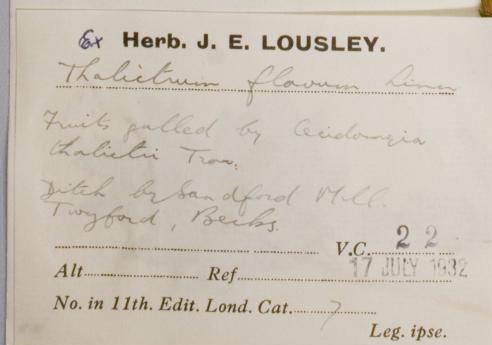 Ex Herb. J. E. LOUSLEY.
Thalictrum flavum Linn
Fruits galled by Cecidomyia
thalictri Trav.
Ditch by Sandford Mill.
Twyford, Berks.
V.C. 22
Alt. Ref. 17 JULY 1932
No. in 11th. Edit. Lond. Cat. 7
Leg. ipse.